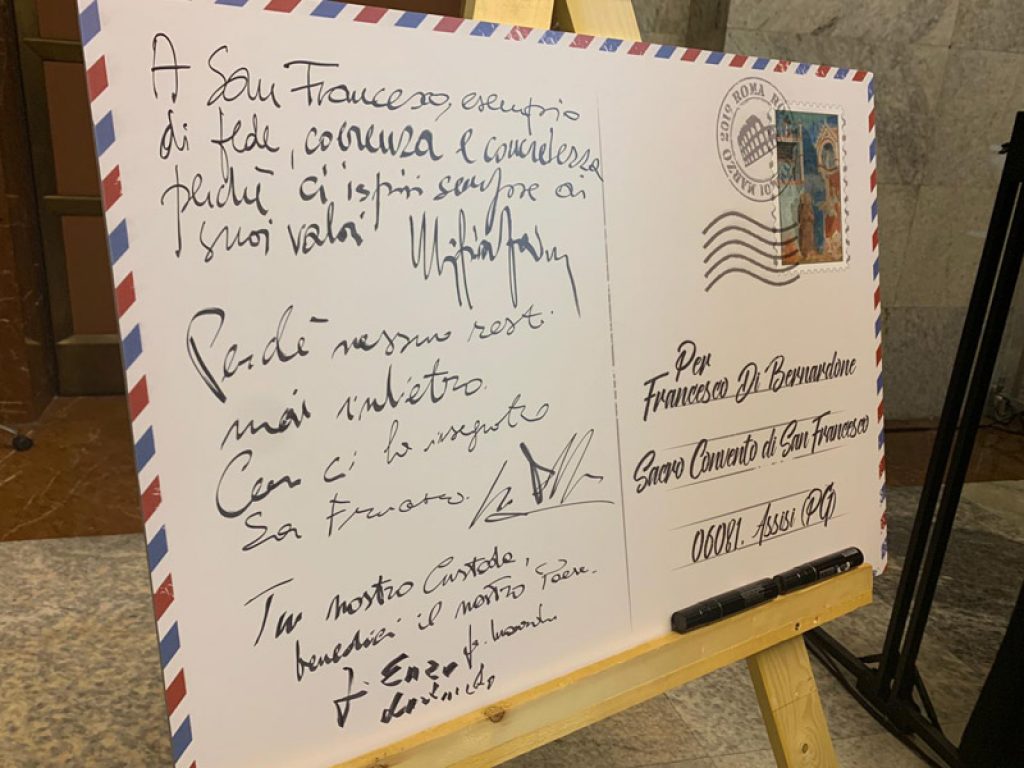 A San Francesco, esempio
di fede, coerenza e concretezza
perché ci ispiri sempre ai
suoi valori
Perché nessuno resti
mai indietro.
Come ci ha insegnato
San Francesco.
Tu nostro Custode,
benedici il nostro Paese.
f. Enzo
ROMA
MARZO 2019
Per
Francesco Di Bernardone
Sacro Convento di San Francesco
06081. Assisi (PG)